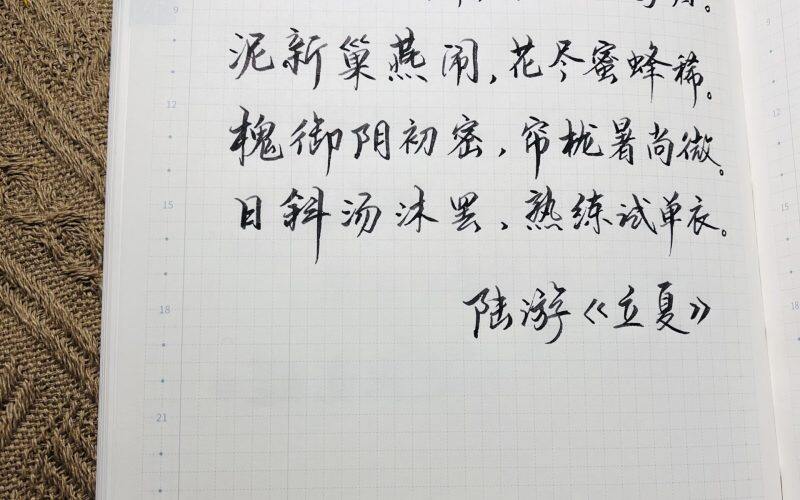 泥新巢燕闹,花尽蜜蜂稀。
槐御阴初密,帘栊暑尚微。
日斜汤沐罢,熟练试单衣。
陆游《立夏》
9
12
15
18
21
9
12
15